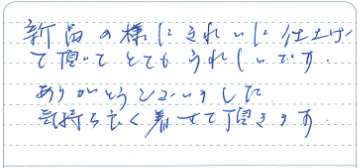 新品の様にきれいに仕上げ
て頂いてとてもうれしいです.
ありがとうございました
気持ち良く着せて頂きます